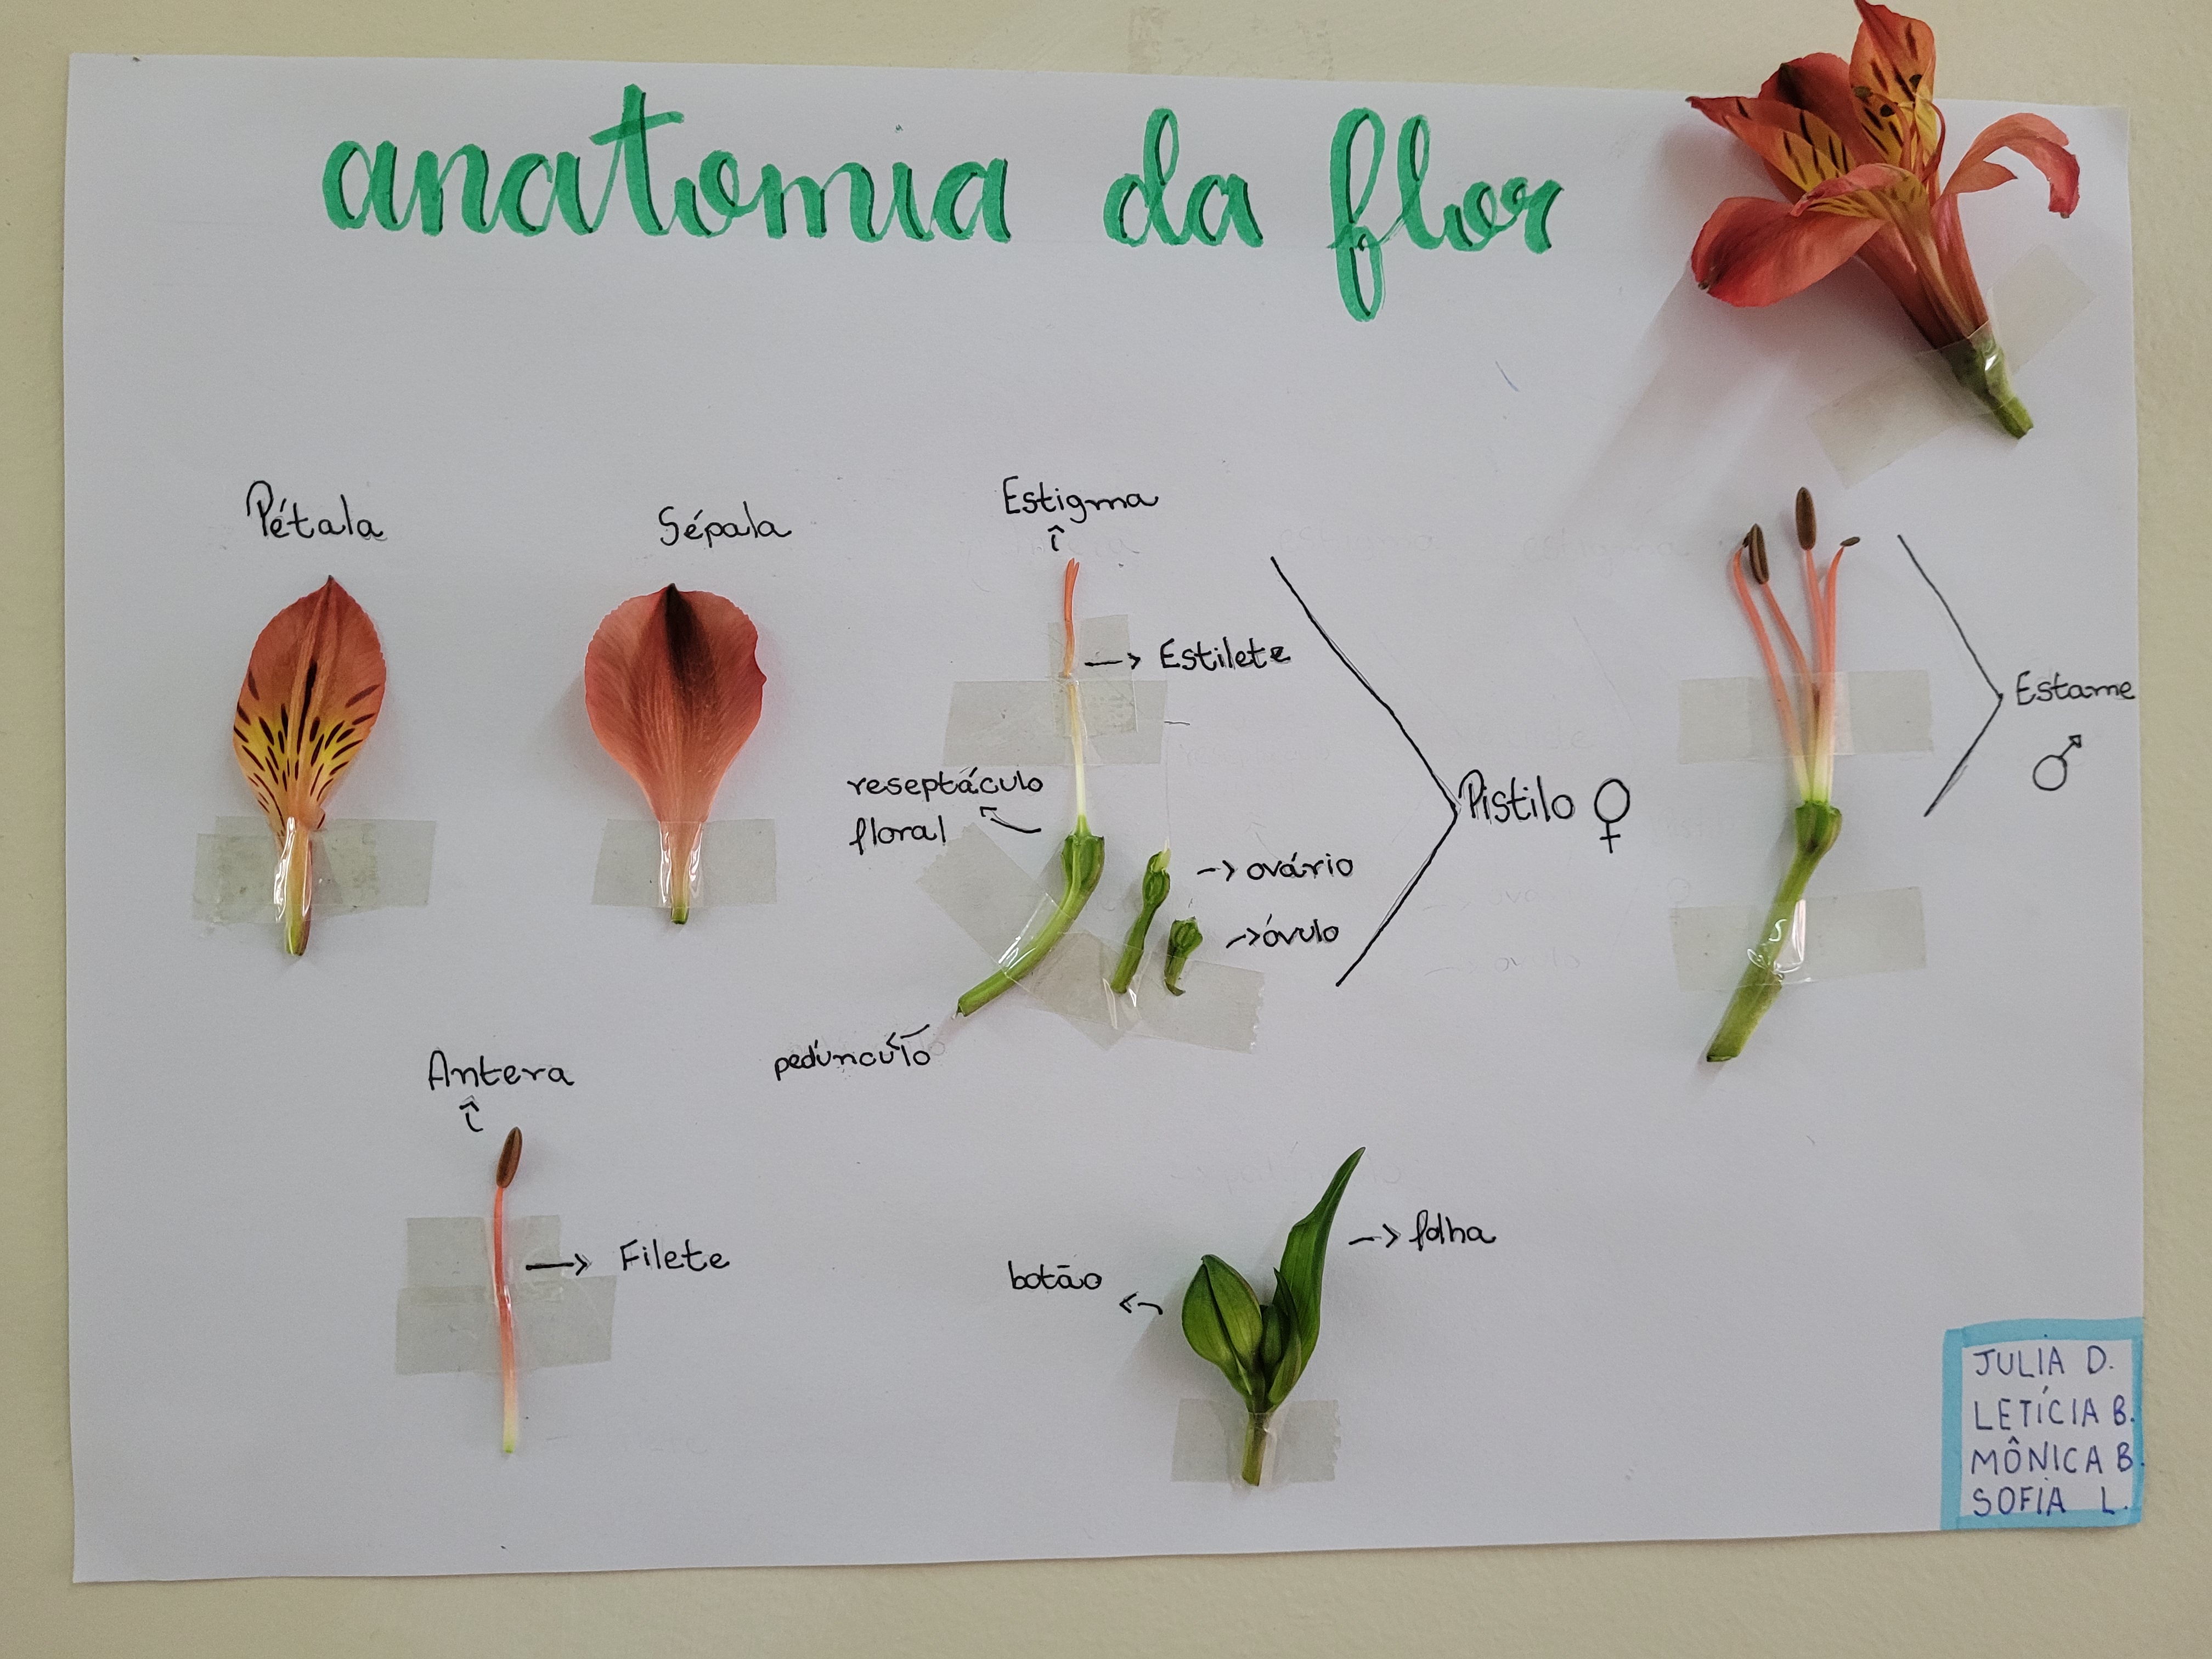 anatomia da flor
Pétala
Sépala
Estigma
Estilete
reseptáculo
floral
ovário
óvulo
pedúnculo
Pistilo ♀
Estame
♂
Antera
Filete
botão
folha
JULIA D.
LETÍCIA B.
MÔNICA B.
SOFIA L.